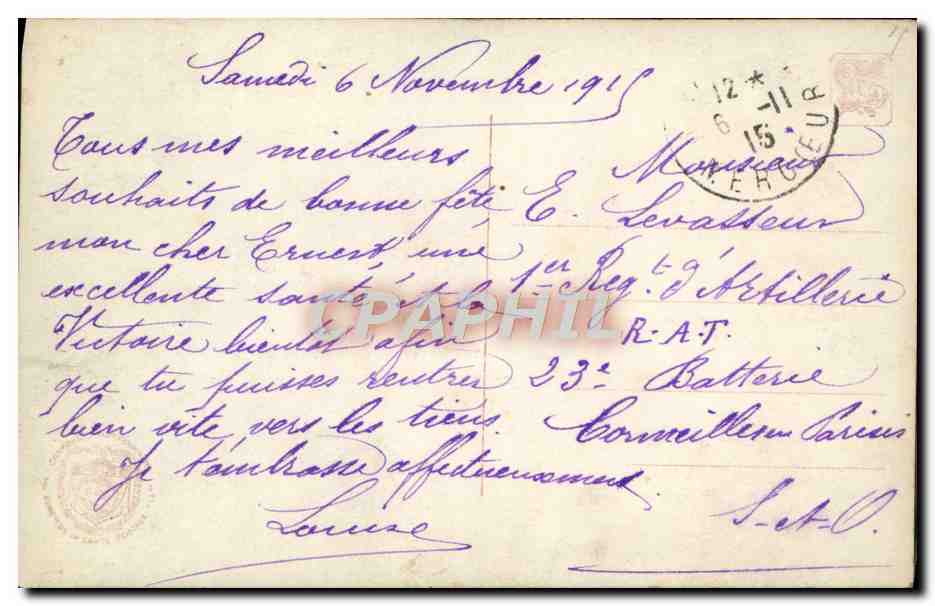 Samedi 6 Novembre 1915
Tous mes meilleurs
souhaits de bonne fête
mon cher Ernest, une
excellente santé, et la
Victoire bientôt afin
que tu puisses rentrer
bien vite vers les tiens.
Je t'embrasse affectueusement
Louise
12 *
6 -11
15
Monsieur
E. Levasseur
1er Regt. d'Artillerie
R.A.T.
23e Batterie
Cormeilles en Parisis
S-et-O.
CPAPHIL